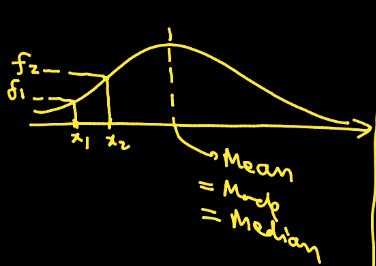 f2
f1
x1 x2
Mean
= Mode
= Median